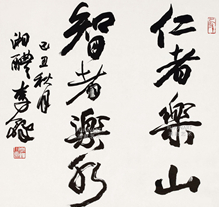 仁者樂山
智者樂水
己丑秋月
湘醴李